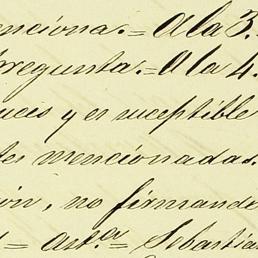 enciona.= A la 3.
Pregunta.= A la 4.
uces y es suceptible
tes mencionadas.
ón, no firmando
= Sebastiá